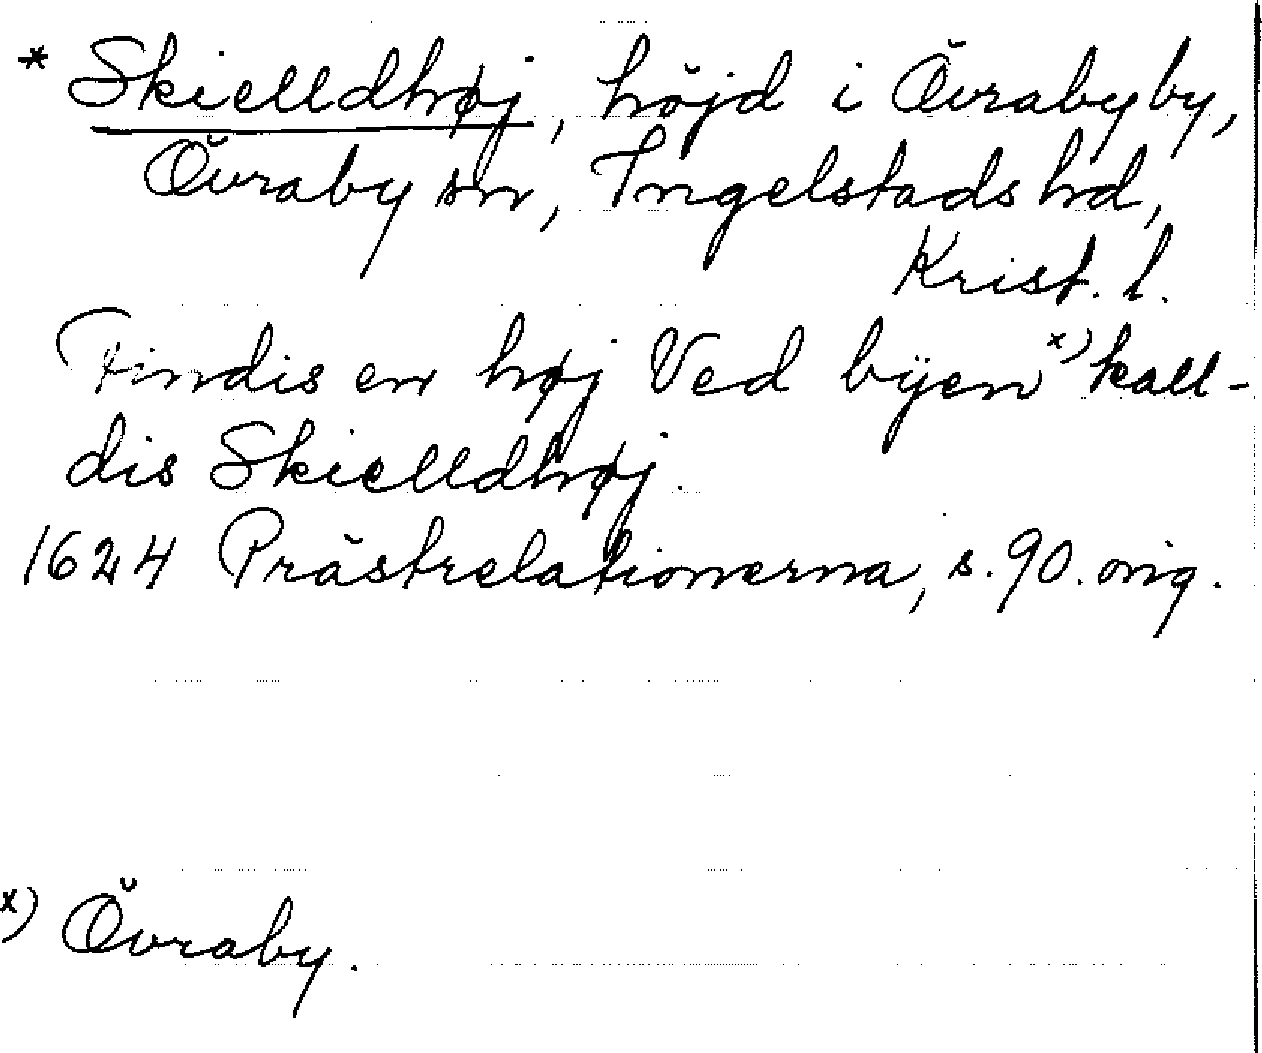 * Skielldhøj, höjd i Övraby by,
Övraby sn, Ingelstads hd,
Krist. l.
Findis en høj Ved bÿen x) kall-
dis Skielldhøj.
1624 Prästrelationerna, s. 90. orig.
x) Övraby.